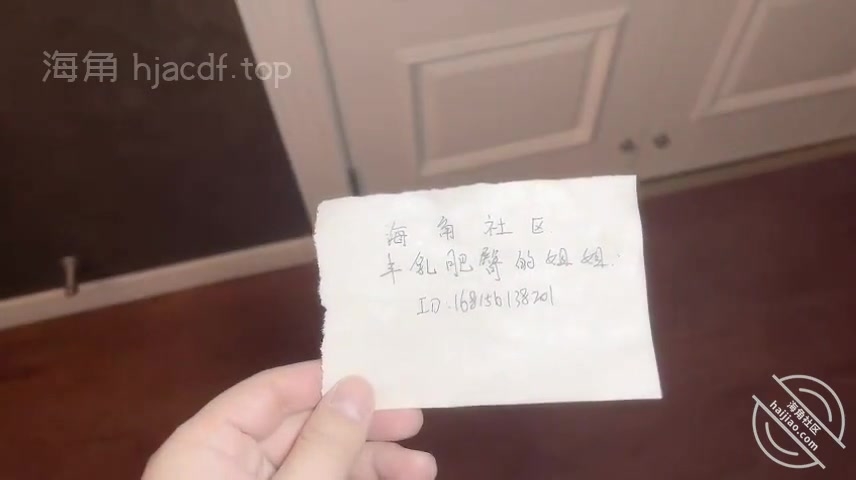 海角 hjacdf.top
海角社区
丰乳肥臀的姐姐.
ID.168156138201
海角社区
haijiao.com